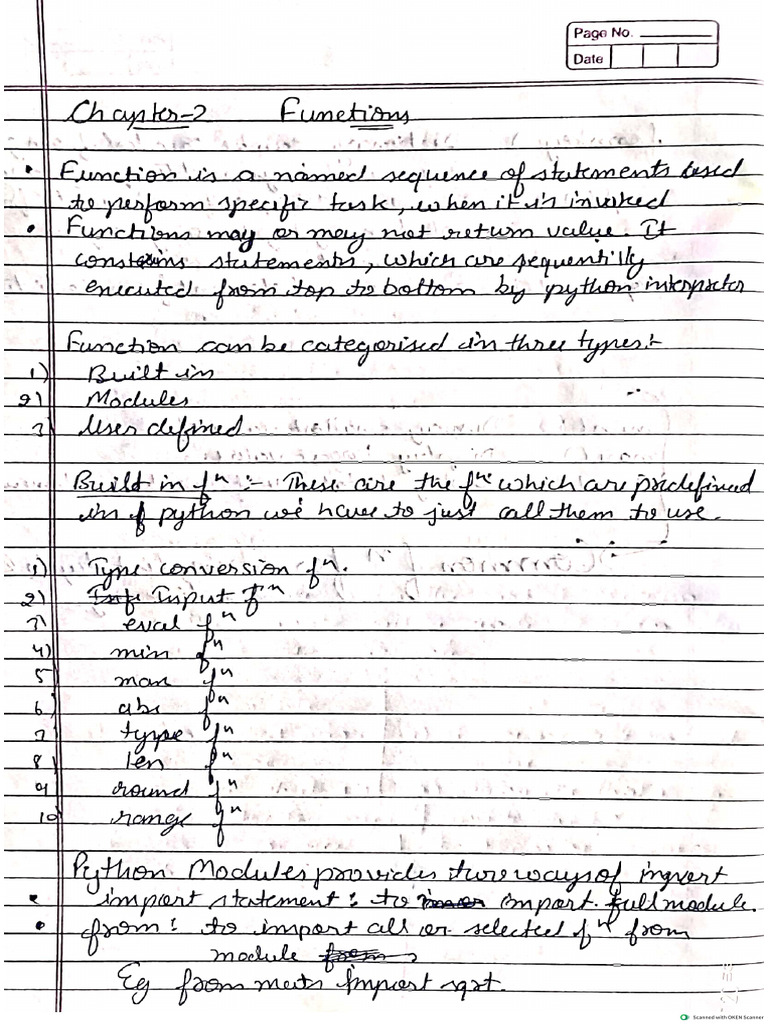 Page No.
Date
Chapter-2 Functions
• Function is a named sequence of statements used
to perform specific task, when it is invoked
• Functions may or may not return value. It
constains statements, which are sequentilly
executed from top to bottom by python interpretor
Function can be categorised in three types:-
1) Built in
2) Modules
3) User defined
Built in fⁿ :- These are the fⁿˢ which are predefined
in python we have to just call them to use.
1) Type conversion fⁿ.
2) Input fⁿ
3) eval fⁿ
4) min fⁿ
5 max fⁿ
6) abs fⁿ
7 type fⁿ
8 len fⁿ
9 round fⁿ
10 range fⁿ
Python Modules provides two ways of
• import statement : to import full module.
• from : to import all or selected fⁿ from
module
Eg from math import sqrt.
Scanned with OKEN Scanner